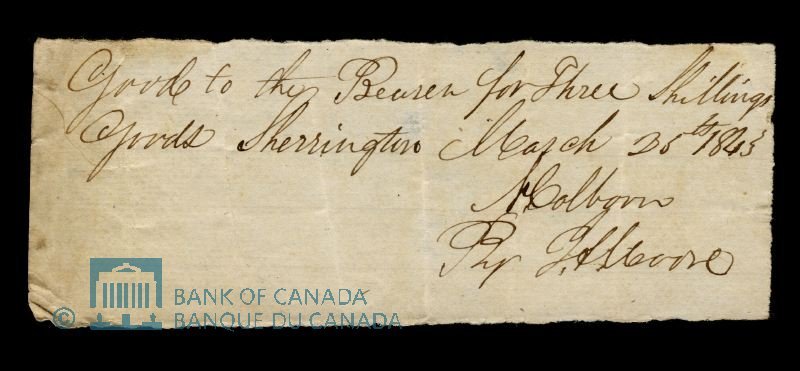 Good to the Bearer for Three Shillings
Goods Sherrington March 25th 1843
Holborn
Pr J. A. Moore
© BANK OF CANADA
BANQUE DU CANADA